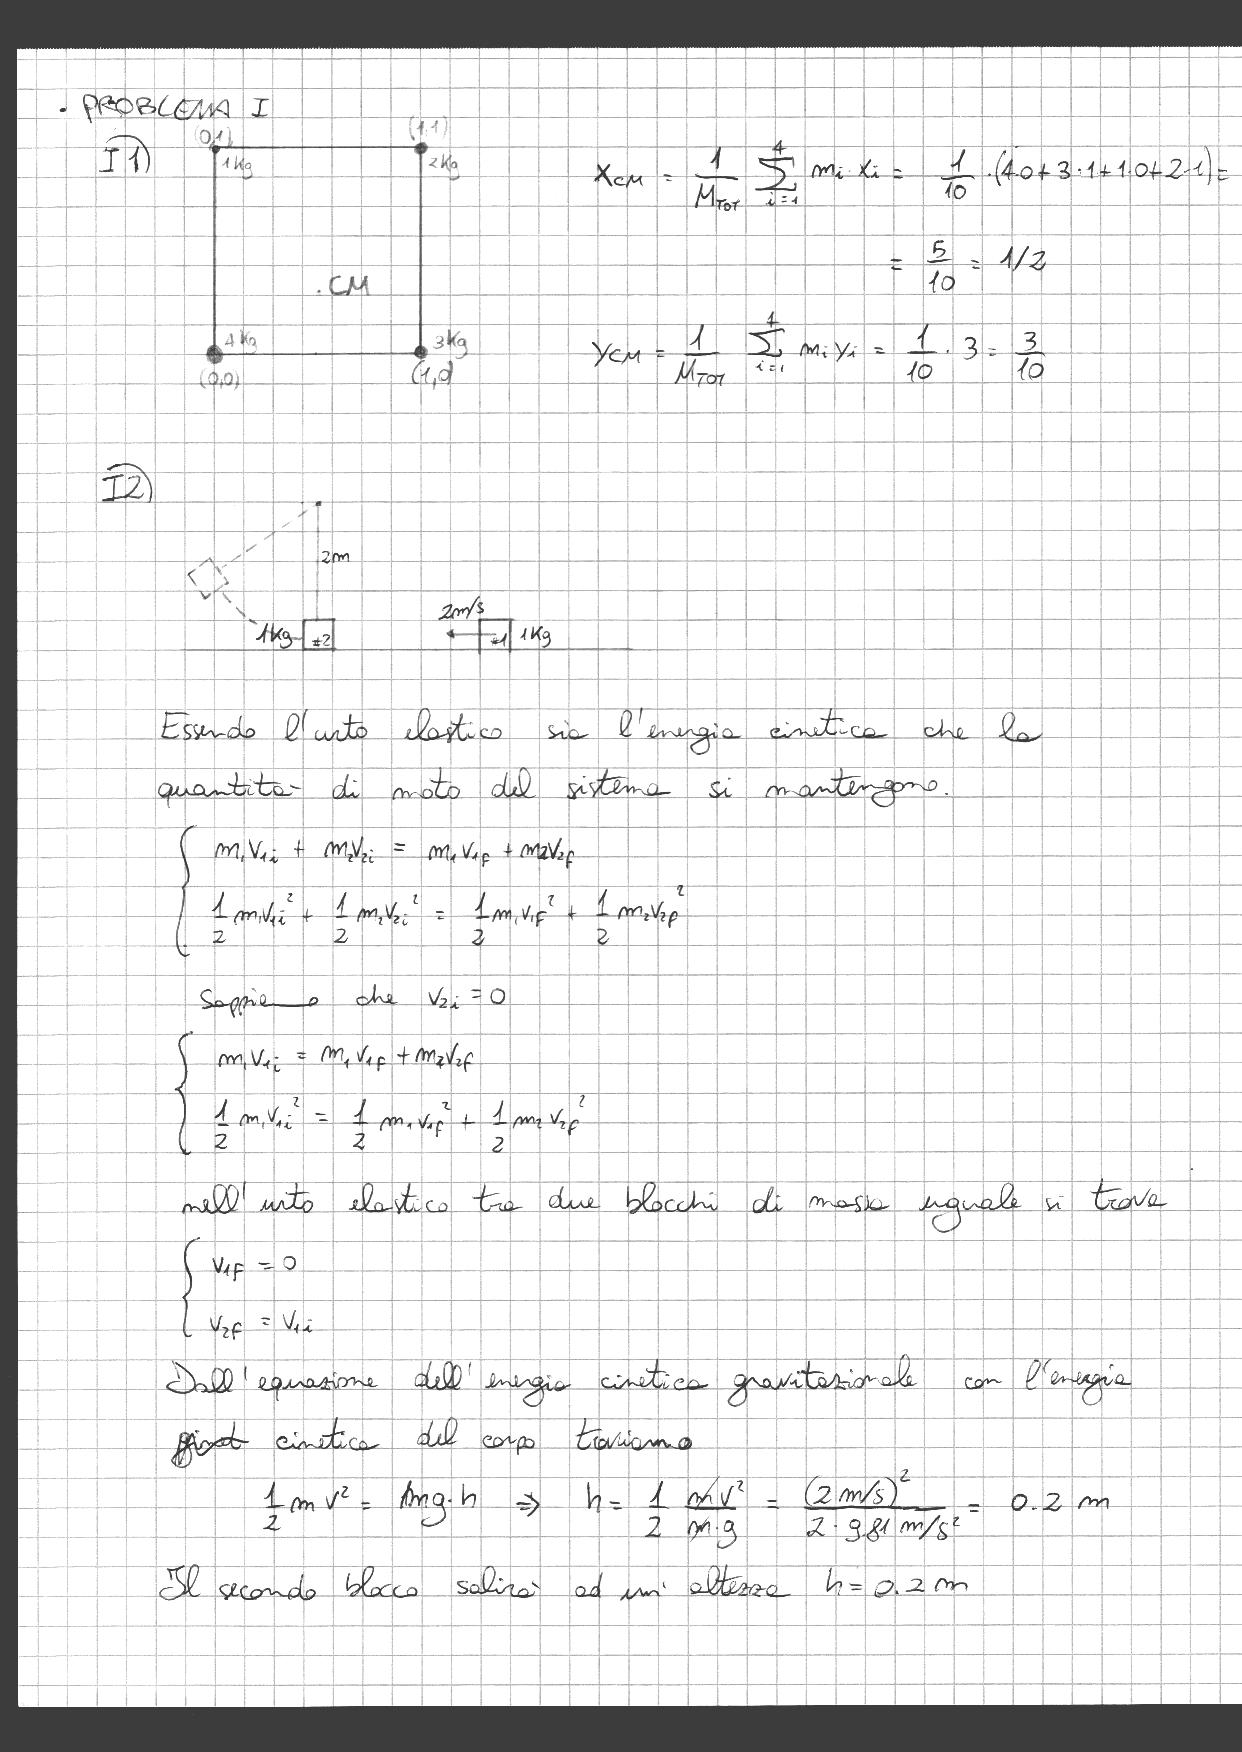 · PROBLEMA I
I1)
(0,1)
(1,1)
1Kg
2Kg
.CM
4Kg
3Kg
(0,0)
(1,0)
X_CM = 1/M_TOT Σ_{i=1}^{4} m_i·x_i = 1/10 ·(4·0+3·1+1·0+2·1) =
= 5/10 = 1/2
Y_CM = 1/M_TOT Σ_{i=1}^{4} m_i y_i = 1/10 · 3 = 3/10
I2)
2m
2m/s
1Kg #2
#1 1Kg
Essendo l'urto elastico sia l'energia cinetica che la
quantità di moto del sistema si mantengono.
m₁v₁ᵢ + m₂v₂ᵢ = m₁v₁f + m₂v₂f
1/2 m₁v₁ᵢ² + 1/2 m₂v₂ᵢ² = 1/2 m₁v₁f² + 1/2 m₂v₂f²
Sappiamo che v₂ᵢ = 0
m₁v₁ᵢ = m₁v₁f + m₂v₂f
1/2 m₁v₁ᵢ² = 1/2 m₁v₁f² + 1/2 m₂v₂f²
nell'urto elastico tra due blocchi di massa uguale si trova
v₁f = 0
v₂f = v₁ᵢ
Dall'equazione dell'energia cinetica gravitazionale con l'energia
cinetica del corpo troviamo
1/2 m v² = mg·h ⇒ h = 1/2 mv²/m·g = (2 m/s)²/2·9.81 m/s² = 0.2 m
Il secondo blocco salirà ad un'altezza h = 0.2 m